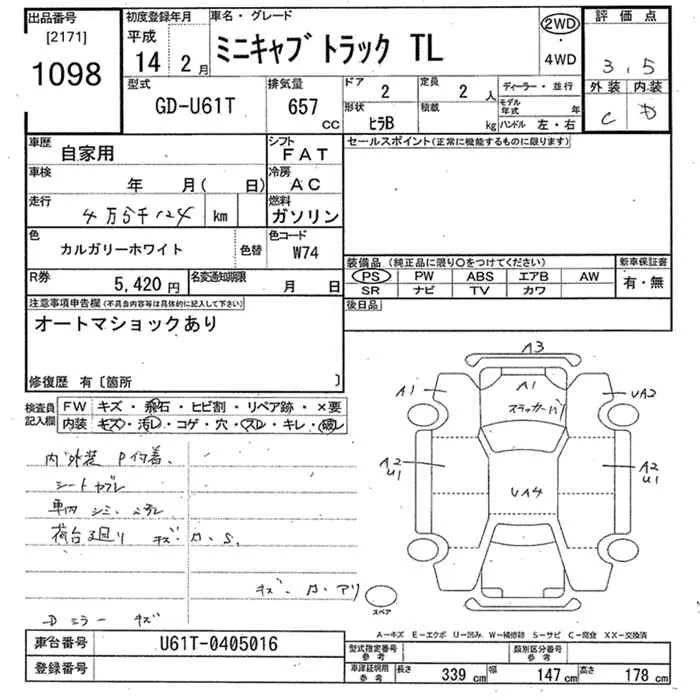 出品番号 初度登録年月 車名・グレード 2WD 評価点
[2171] 平成
1098 14 2月 ミニキャブ トラック TL 4WD 3.5
型式 排気量 ドア 定員 ディーラー・並行 外装 内装
GD-U61T 657 CC 2 2人 モデル年式 年 C D
形状 積載
ヒラB kg ハンドル 左・右
車歴 自家用 シフト FAT セールスポイント(正常に機能するものに限ります)
車検 年 月( 日) 冷房 AC
走行 4万5千124 km 燃料 ガソリン
色 カルガリーホワイト 色替 色コード W74
装備品(純正品に限り○をつけてください) 新車保証書
PS PW ABS エアB AW 有・無
SR ナビ TV カワ
R券 5,420円 名変通知期限 月 日
後日品
注意事項申告欄(不具合内容等は具体的に記入して下さい)
オートマショックあり
修復歴 有〔箇所 〕
検査員記入欄 FW キズ・飛石・ヒビ割・リペア跡・×要
内装 キズ・汚レ・コゲ・穴・スレ・キレ・破レ
内外装 P付着、
シートヤブレ
車内 シミ、
荷台廻り キズ・A、S、
キズ・A・アリ
Dミラー キズ
A3
A1 A1 UA2
A2 U1 A2 U1
UA4
スペア
A-キズ E-エクボ U-凹み W-補修跡 S-サビ C-腐食 XX-交換済
車台番号 U61T-0405016
型式指定番号 参考 類別区分番号 参考
登録番号
車庫証明用 参考 長さ 339 cm 幅 147 cm 高さ 178 cm